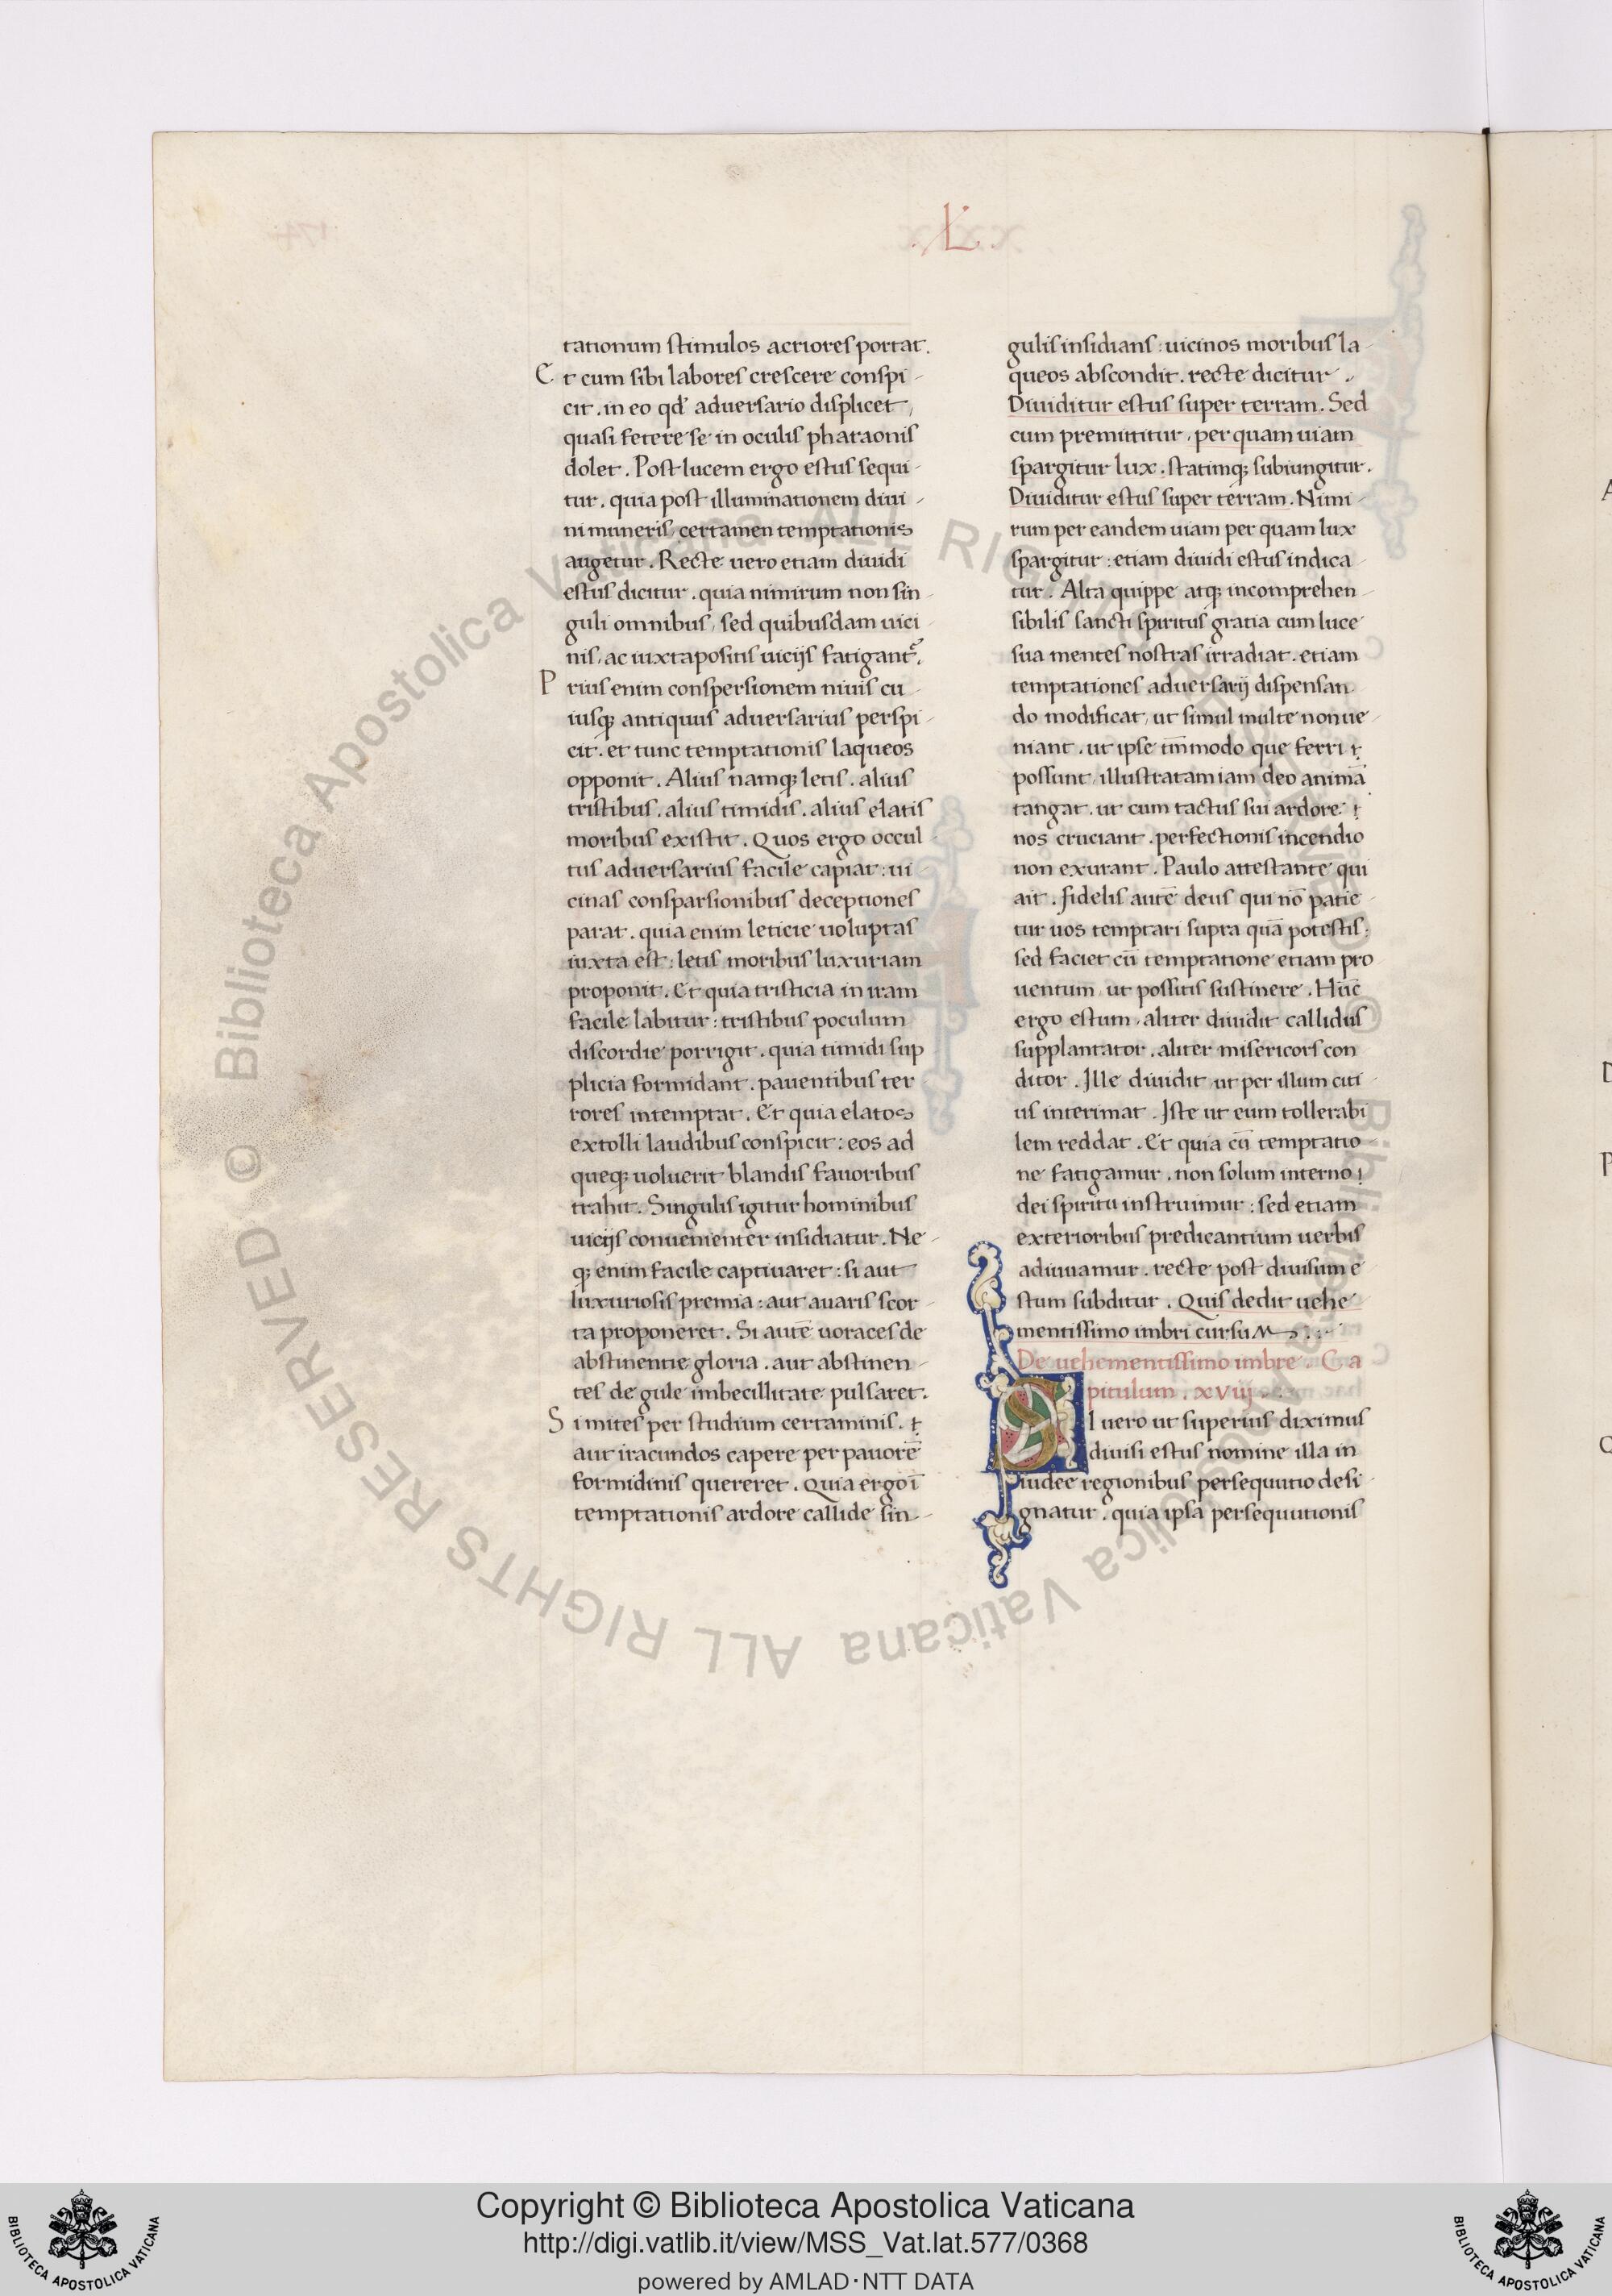 .L.
tationum stimulos acriores portat.
Et cum sibi labores crescere conspi-
cit. in eo qd' aduersario displicet,
quasi fetere se in oculis pharaonis
dolet. Post lucem ergo estus sequi-
tur. quia post illuminationem diui-
ni muneris, certamen temptationis
augetur. Recte uero etiam diuidi
estus dicitur. quia nimirum non sin-
guli omnibus, sed quibusdam uici
nis, ac iuxta positis uicijs fatigant᷑.
Prius enim conspersionem niuis cu-
iusq; antiquus aduersarius perspi-
cit. et tunc temptationis laqueos
opponit. Alius namq; letis. alius
tristibus. alius timidis. alius elatis
moribus existit. Quos ergo occul-
tus aduersarius facile capiat: ui
cinas consparsionibus deceptiones
parat. quia enim leticie uoluptas
iuxta est: letis moribus luxuriam
proponit. Et quia tristicia in iram
facile labitur: tristibus poculum
discordie porrigit. quia timidi sup
plicia formidant. pauentibus ter
rores intemptat. Et quia elatos
extolli laudibus conspicit: eos ad
queq; uoluerit blandis fauoribus
trahit. Singulis igitur hominibus
uicijs conuenienter insidiatur. Ne-
q; enim facile captiuaret: si aut
luxuriosis premia: aut auaris scor-
ta proponeret. Si autē uoraces de
abstinentie gloria. aut abstinen-
tes de gule imbecillitate pulsaret.
Si mites per studium certaminis.
aut iracundos capere per pauorē
formidinis quereret. Quia ergo ī
temptationis ardore callide sin-
gulis insidians: uicinos moribus la-
queos abscondit. recte dicitur.
Diuiditur estus super terram. Sed
cum premittitur, per quam uiam
spargitur lux. statimq; subiungitur.
Diuiditur estus super terram. Nimi-
rum per eandem uiam per quam lux
spargitur: etiam diuidi estus indica-
tur. Alta quippe atq; incomprehen-
sibilis sancti spiritus gratia cum luce
sua mentes nostras irradiat. etiam
temptationes aduersarij dispensan
do modificat, ut simul multe non ue-
niant. ut ipse tm̄modo que ferri
possunt, illustratam iam deo animā
tangat. ut cum tactus sui ardore
nos cruciant. perfectionis incendio
non exurant. Paulo attestante qui
ait. fidelis autē deus qui nō patie-
tur uos temptari supra quā potestis:
sed faciet cū temptatione etiam pro
uentum, ut possitis sustinere. Hūc
ergo estum, aliter diuidit callidus
supplantator. aliter misericors con
ditor. Ille diuidit ut per illum citi-
us interimat. Iste ut eum tollerabi
lem reddat. Et quia cū temptatio-
ne fatigamur. non solum interno
dei spiritu instruimur: sed etiam
exterioribus predicantium uerbis
adiuuamur. recte post diuisum e
stum subditur. Quis dedit uehe
mentissimo imbri cursuM
De uehementissimo imbre. Ca
pitulum. xviij.
SI uero ut superius diximus
diuisi estus nomine illa in
iudee regionibus persequutio desi-
gnatur. quia ipsa persequutionis
Copyright © Biblioteca Apostolica Vaticana
http://digi.vatlib.it/view/MSS_Vat.lat.577/0368
powered by AMLAD·NTT DATA
BIBLIOTECA APOSTOLICA VATICANA
BIBLIOTECA APOSTOLICA VATICANA
© Biblioteca Apostolica Vaticana ALL RIGHTS RESERVED
© Biblioteca Apostolica Vaticana ALL RIGHTS RESERVED